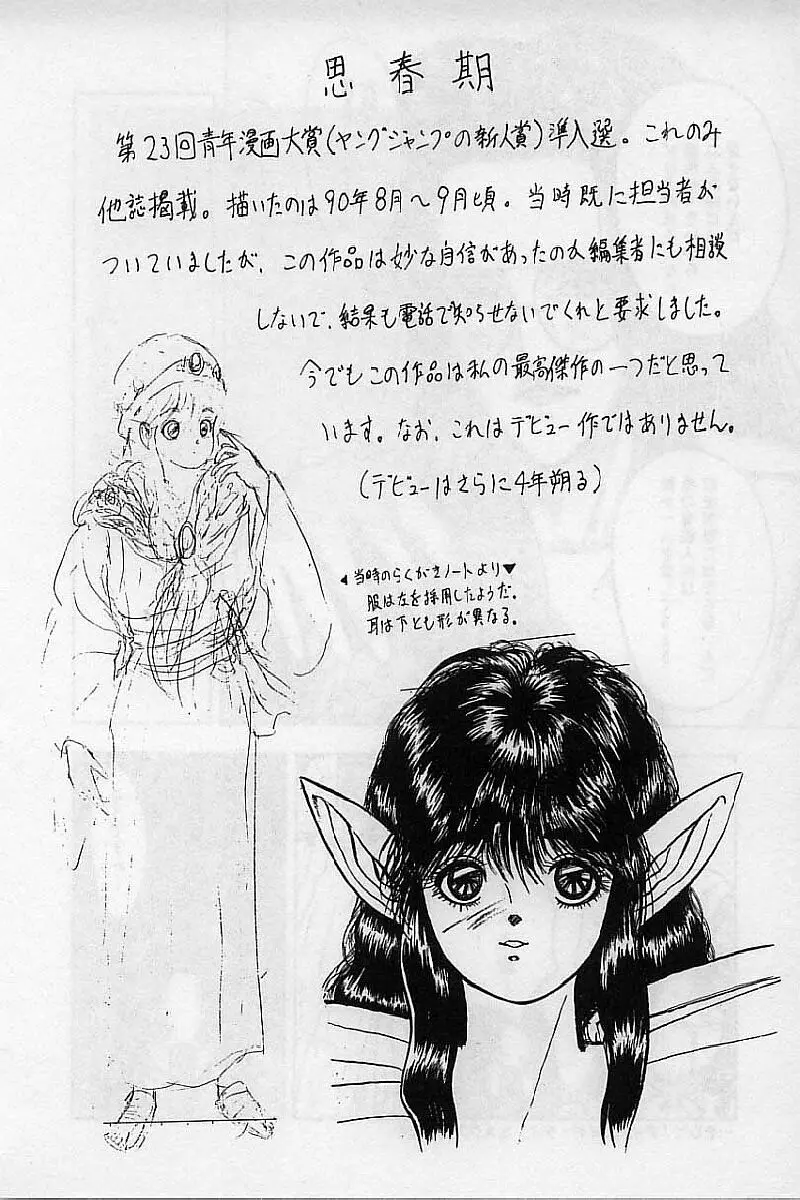 思春期
第23回青年漫画大賞(ヤングジャンプの新人賞)準入選。これのみ
他誌掲載。描いたのは90年8月～9月頃。当時既に担当者が
ついていましたが、この作品は妙な自信があったのか編集者にも相談
しないで、結果も電話で知らせないでくれと要求しました。
今でもこの作品は私の最高傑作の一つだと思って
います。なお、これはデビュー作ではありません。
(デビューはさらに4年朔る)
◀当時のらくがきノートより▼
服は左を採用したようだ。
耳は下とも形が異なる。